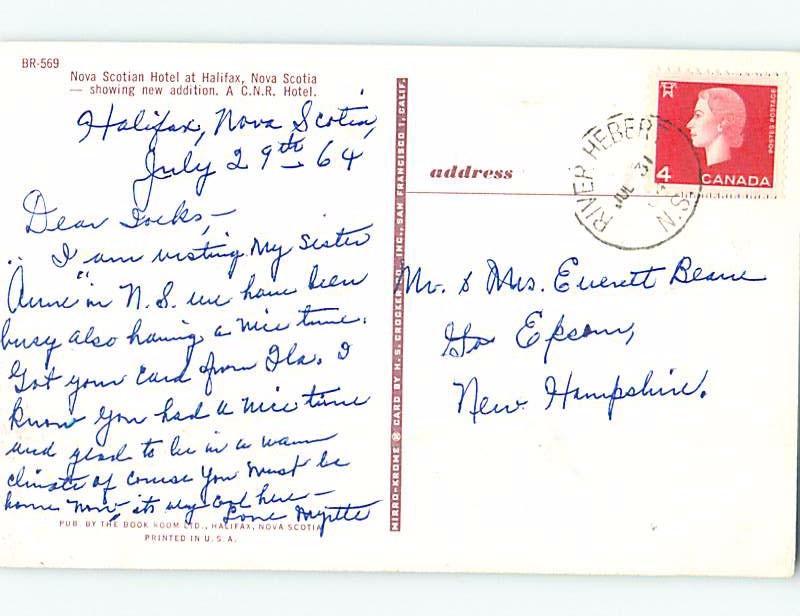 BR-569
Nova Scotian Hotel at Halifax, Nova Scotia
— showing new addition. A C.N.R. Hotel.
Halifax, Nova Scotia,
July 29th — 64
Dear Folks, —
I am visiting My sister
"Anne" in N. S. we have been
busy also having a nice time.
Got your card from Fla. I
know you had a nice time
and glad to be in a warm
climate of course you must be
home now, its very cool here —
Love Myrtle
PUB. BY THE BOOK ROOM LTD., HALIFAX, NOVA SCOTIA
PRINTED IN U.S.A.
MIRRO-KROME ® CARD BY H. S. CROCKER CO., INC., SAN FRANCISCO 1, CALIF.
address
RIVER HEBERT
JUL 31
N.S.
POSTES POSTAGE
4 CANADA
Mr. & Mrs. Everett Beane
Epsom,
New Hampshire.